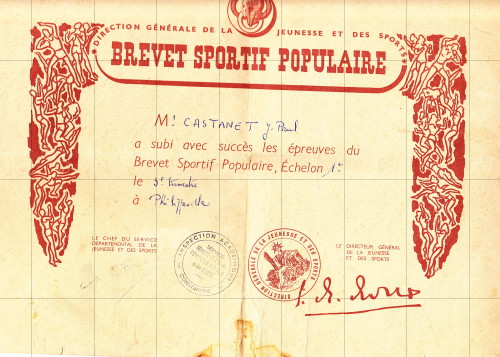 DIRECTION GÉNÉRALE DE LA JEUNESSE ET DES SPORTS
BREVET SPORTIF POPULAIRE
Mr CASTANET J. Paul
a subi avec succès les épreuves du
Brevet Sportif Populaire, Échelon 1er
le 3e trimestre
à Philippeville
LE CHEF DU SERVICE
DÉPARTEMENTAL DE LA
JEUNESSE ET DES SPORTS
INSPECTION ACADÉMIQUE
DIRECTION GÉNÉRALE DE LA JEUNESSE ET DES SPORTS
LE DIRECTEUR GÉNÉRAL
DE LA JEUNESSE
ET DES SPORTS